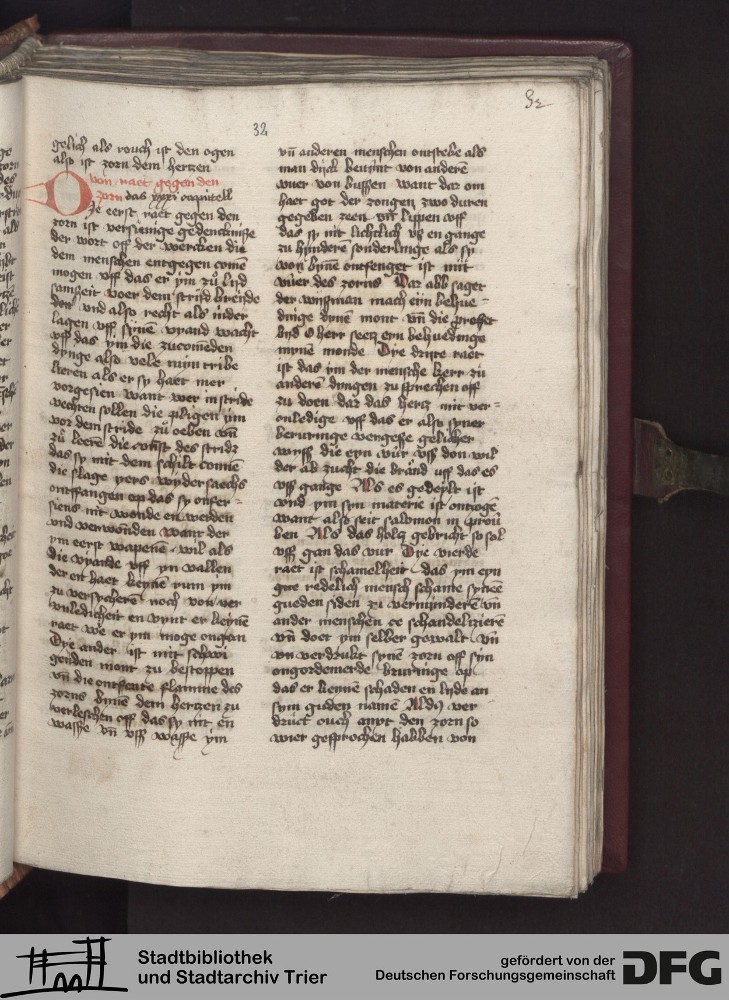 32
gelich als rouch ist den ogen
also ist zorn dem hertzen
von raet gegen den
zorn das xxxi capittell
Die eerst raet gegen den
zorn ist versienige gedencknisze
der wort off der wercken die
dem menschen entgegen comē
mogen vff das er ym zů lyd
samheit voer dem strijd bereide
vnd also recht als in der
lagen vff sijnē vyand wacht
vff das ym die zucomēden
dynge also vele myn tribe
lieren als er sy haet mer
vorgesien want wer in stride
vechten sollen die pligen ym
vor dem stride zů oeben vñ
zů leerē die cunst des stridz
das sy mit dem schilt comē
die slage yers wydersaechs
ontffangen op das sy onfer-
siens nit wonde en werden
vnd verwonden want der
ym eerst wapenē wil als
die vyande vff yn vallen
der en haet keynē rum ym
zu versycherē noch von ver
vnledicheit en vynt er keynē
raet we er ym moge ontgan
Dye ander ist mit schwi
genden mont zu bestoppen
vñ die ontfencte flamme des
zorns binnē dem hertzen zu
verleschen off das sy nit en
wasße vñ vsß wasße ym
vñ anderen menschen ontstebe als
man dyck kumt von anderē
vuer von hussen want dar om
haet got der zongen zwo duren
gegeben zeen vñ lippen vff
das sy nit lichtlich vß en gange
zu hynderē sonderlinge als sy
von bynē ontfenget ist mit
vuer des zorns Dar abb saget
der wijsman mach ein behue-
dnige dinē mont vñ die proffet
bijd O herr seetz eyn behuedinge
mynē monde Dye drijte raet
ist das ym der mensche keer zů
anderē dyngen zu sprechen off
zu doen dar das hertz mit ver-
onledige vff das er also syner
beruringe vergesse gelicher
wyß die eyn vůr vß don wil
der ab zucht die brand vff das es
vß gange Als es gedeylt ist
vnd ym syn materie ist ontzogē
want also seit salomon in prou
ben Als das holtz gebricht so sol
vß gan das vur Dye vierde
raet ist schamelheit das ym eyn
gut redelich mensch schame synē
gueden syden zu vermynderē vñ
ander menschen oe schandelizierē
vñ doet ym selber gewalt vñ
vn verdrukt synē zorn off sijn
ongordenierde beruringe op
das er kennē schaden en lyde an
sym guden namē Aldus ver
druct ouch ampt den zorn so
wier gesprochen habben von
Stadtbibliothek
und Stadtarchiv Trier
gefördert von der
Deutschen Forschungsgemeinschaft
DFG